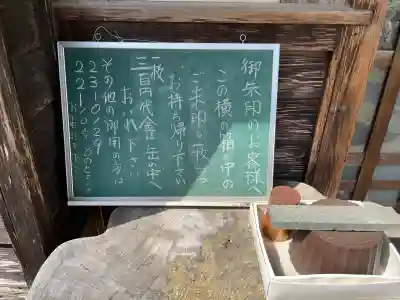 御朱印のお客様へ
この横の箱の中の
ご朱印を一枚づつ
お持ち帰り下さい
一枚
三百円代金は缶の中へ
お入れ下さい
その他の御用の方は
23-0129
22-1109